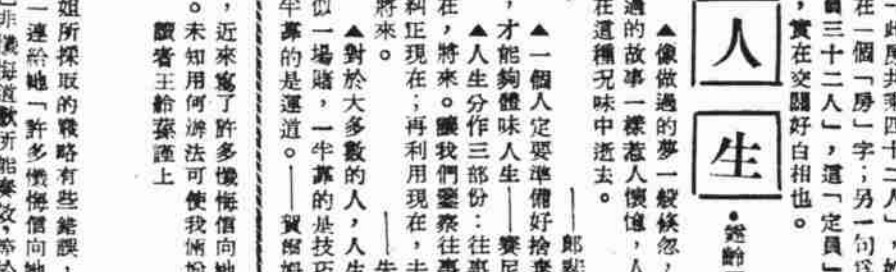 在一個「房」字;另一句爲
三十二人」,這「定員」
,實在交關好白相也。
人生
▲像做過的夢一般倏忽,
過的故事一樣惹人懷憶,人
在這種况味中逝去。
▲一個人定要準備好捨棄
,才能夠體味人生——賽尼
▲人生分作三部份:往事
在,將來。讓我們鑒察往事
糾正現在;再利用現在,去
將來。
▲對於大多數的人,人生
似一場賭,一半靠的是技巧
半靠的是運道。——賀
,近來寫了許多懺悔信向她
。未知用何辦法可使我倆
讀者王給蓀謹上
姐所採取的戰略有些錯誤,
一連給她「許多懺悔信向她
非懺悔道歉所能奏效,